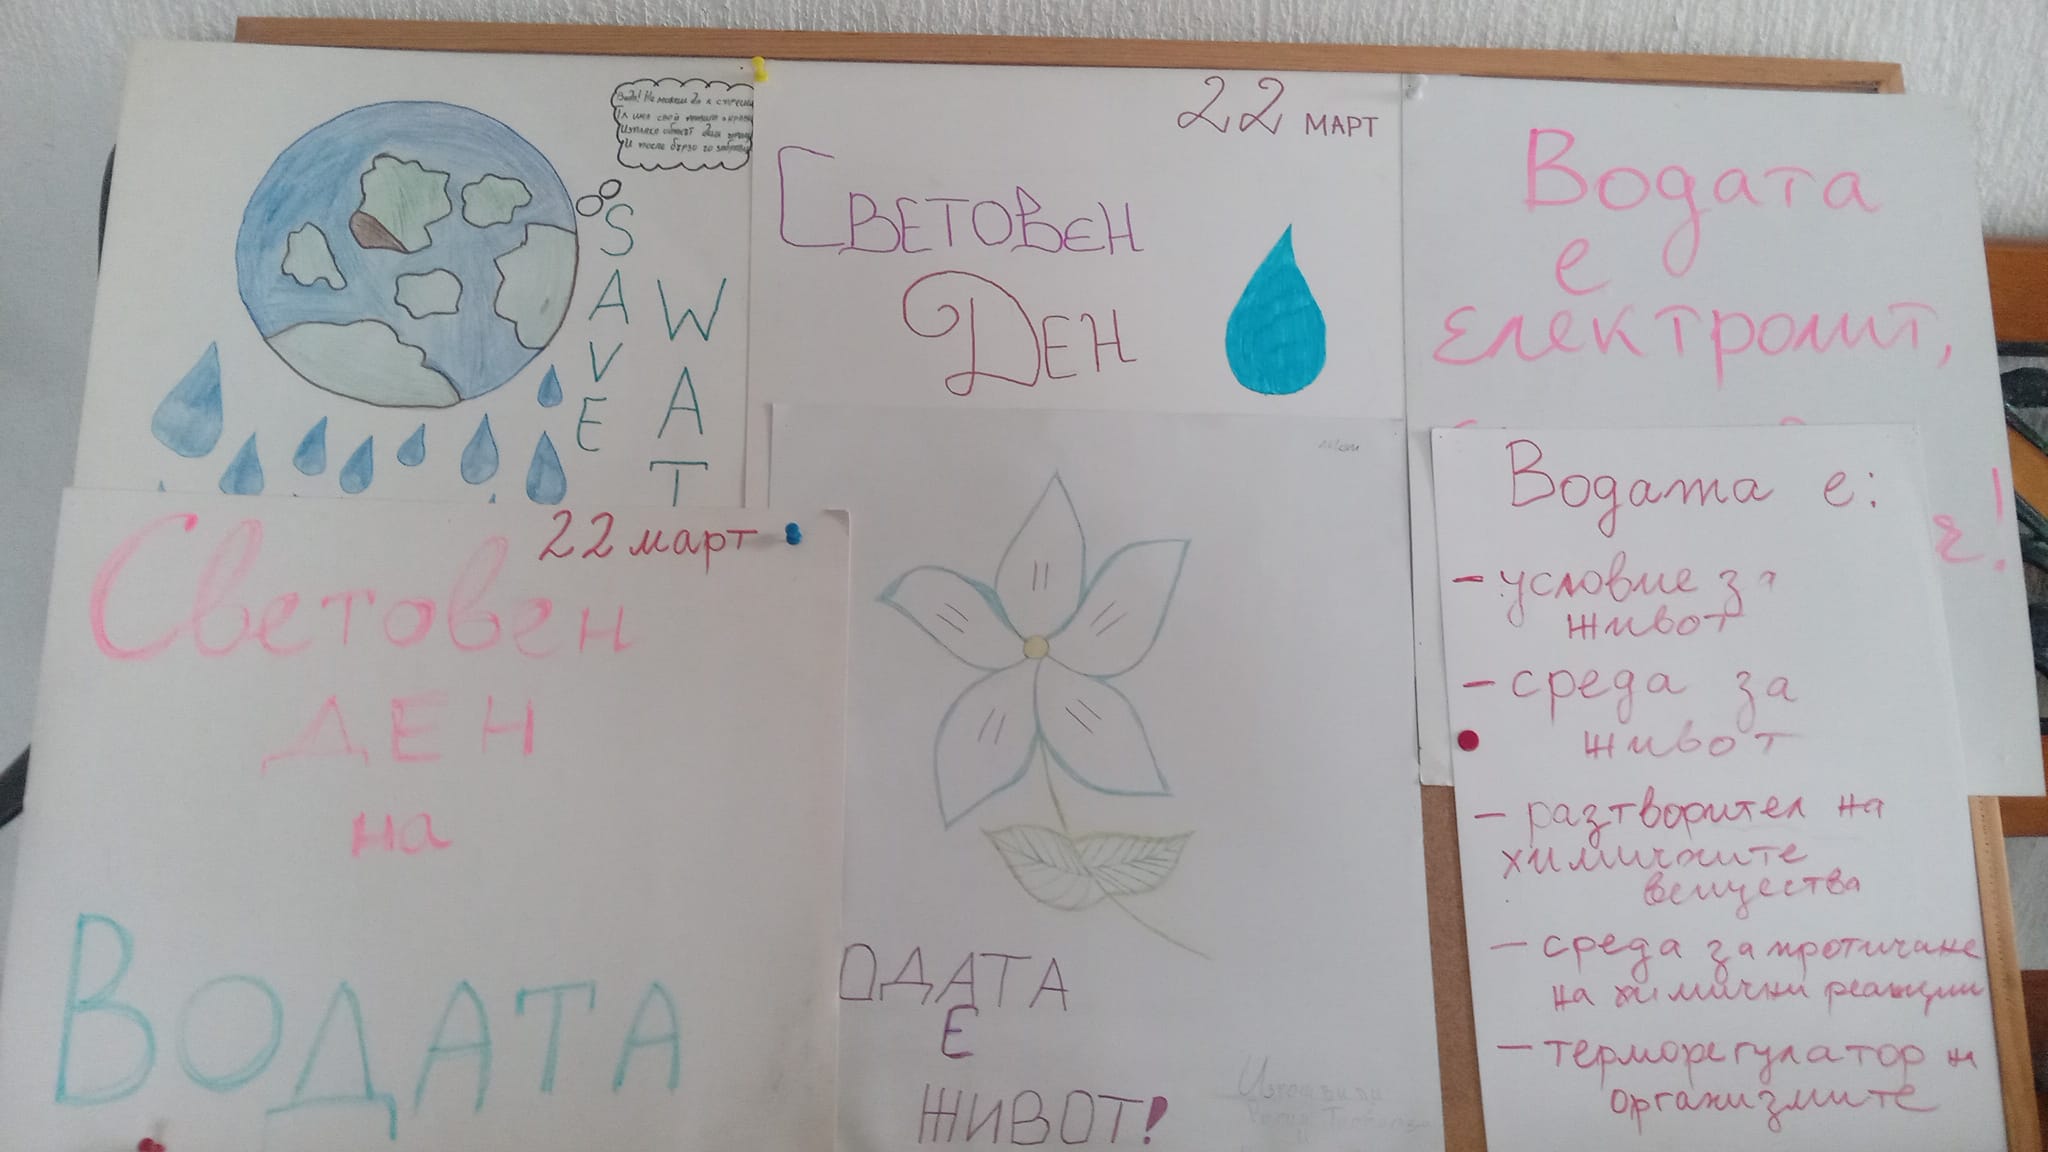 Вода! Не можеш да
22 МАРТ
СВЕТОВЕН
ДЕН
SAVE
WAT
Водата
е
електролит,
!
22 март
Световен
ДЕН
на
ВОДАТА
ОДАТА
Е
ЖИВОТ!
Водата е:
- условие за
живот
- среда за
живот
- разтворител на
химичните
вещества
- среда за протичане
на химични реакции
- терморегулатор н
организмите